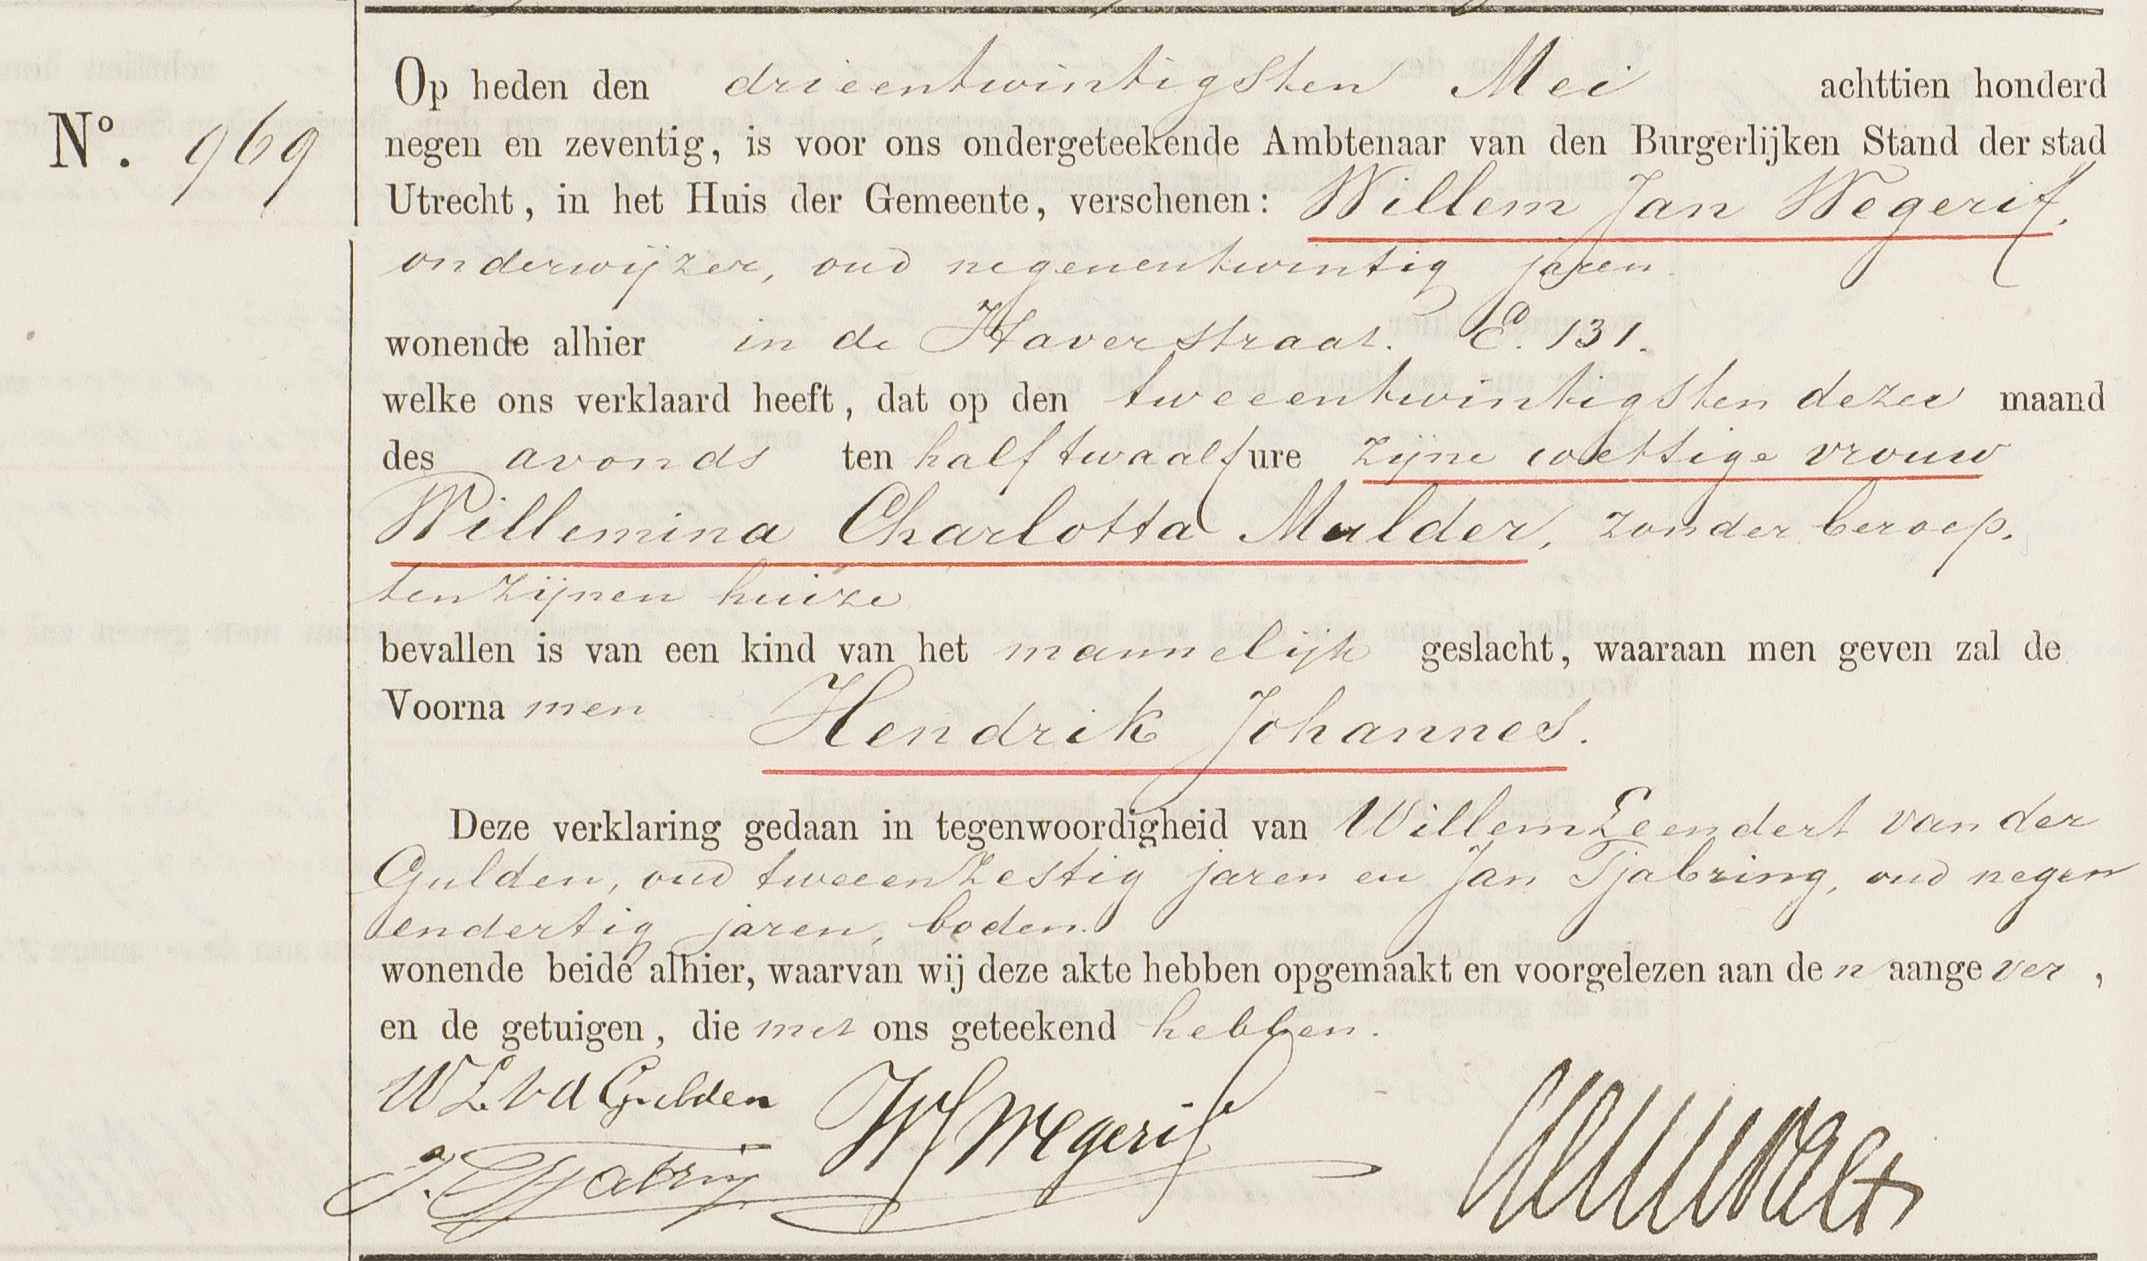 Op heden den drieentwintigsten Mei achttien honderd
No. 969
negen en zeventig, is voor ons ondergeteekende Ambtenaar van den Burgerlijken Stand der stad
Utrecht, in het Huis der Gemeente, verschenen: Willem Jan Wegerif,
onderwijzer, oud negenentwintig jaren
wonende alhier in de Haverstraat. E. 131.
welke ons verklaard heeft, dat op den tweeentwintigsten dezer maand
des avonds ten half twaalf ure zijne wettige vrouw
Willemina Charlotta Mulder, zonder beroep,
ten zijnen huize
bevallen is van een kind van het mannelijk geslacht, waaraan men geven zal de
Voornamen Hendrik Johannes.
Deze verklaring gedaan in tegenwoordigheid van Willem Leendert van der
Gulden, oud tweeenzestig jaren en Jan Tjabring, oud negen
endertig jaren, boden.
wonende beide alhier, waarvan wij deze akte hebben opgemaakt en voorgelezen aan den aangever,
en de getuigen, die met ons geteekend hebben.
W L v d Gulden WJ Wegerif
J. Tjabring